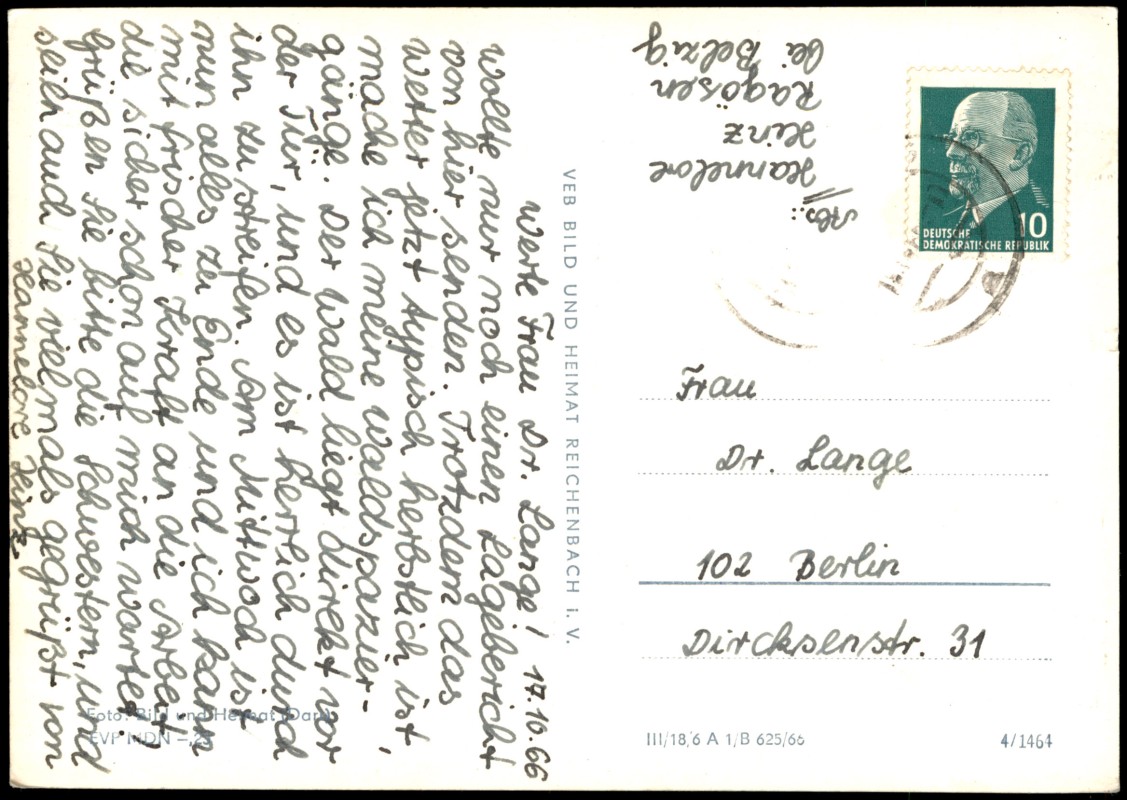 Werte Frau Dr. Lange! 17.10.66
wollte nur noch einen Lagebericht
von hier senden. Trotzdem das
Wetter jetzt typisch herbstlich ist,
mache ich meine Waldspazier-
gänge. Der Wald liegt direkt vor
der Tür, und es ist herrlich durch
ihn zu streifen. Am Mittwoch ist
nun alles zu Ende und ich kann
mit frischer Kraft an die Arbeit,
die sicher schon auf mich wartet.
Grüßen Sie bitte die Schwestern, und
seien auch Sie vielmals gegrüßt von
Hannelore Hinz
VEB BILD UND HEIMAT REICHENBACH i. V.
Foto: Bild und Heimat (Darr)
EVP MDN -,25
Abs.:
Hannelore
Hinz
Ragösen
bei Belzig
10
DEUTSCHE
DEMOKRATISCHE REPUBLIK
Frau
Dr. Lange
102 Berlin
Dircksenstr. 31
III/18/6 A 1/B 625/66
4/1464